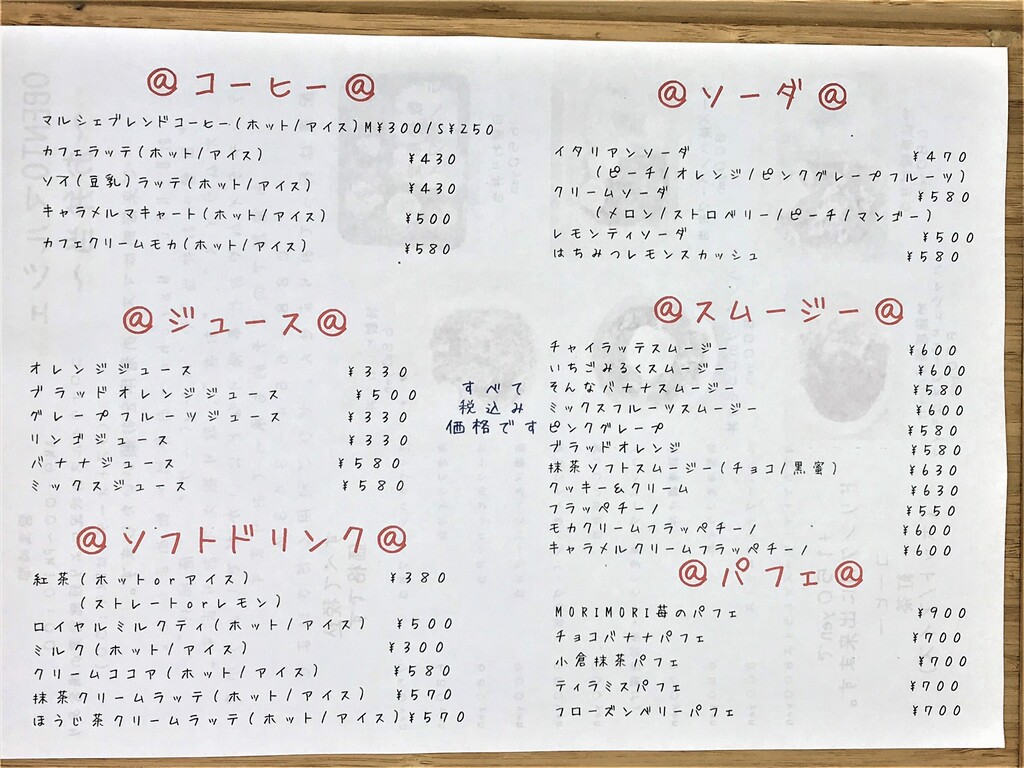 @コーヒー@
マルシェブレンドコーヒー(ホット/アイス)M¥300/S¥250
カフェラッテ(ホット/アイス) ¥430
ソイ(豆乳)ラッテ(ホット/アイス) ¥430
キャラメルマキャート(ホット/アイス) ¥500
カフェクリームモカ(ホット/アイス) ¥580
@ジュース@
オレンジジュース ¥330
ブラッドオレンジジュース ¥500
グレープフルーツジュース ¥330
リンゴジュース ¥330
バナナジュース ¥580
ミックスジュース ¥580
すべて
税込み
価格です
@ソフトドリンク@
紅茶(ホットorアイス) ¥380
(ストレートorレモン)
ロイヤルミルクティ(ホット/アイス) ¥500
ミルク(ホット/アイス) ¥300
クリームココア(ホット/アイス) ¥580
抹茶クリームラッテ(ホット/アイス) ¥570
ほうじ茶クリームラッテ(ホット/アイス) ¥570
@ソーダ@
イタリアンソーダ ¥470
(ピーチ/オレンジ/ピンクグレープフルーツ)
クリームソーダ ¥580
(メロン/ストロベリー/ピーチ/マンゴー)
レモンティソーダ ¥500
はちみつレモンスカッシュ ¥580
@スムージー@
チャイラッテスムージー ¥600
いちごみるくスムージー ¥600
そんなバナナスムージー ¥580
ミックスフルーツスムージー ¥600
ピンクグレープ ¥580
ブラッドオレンジ ¥580
抹茶ソフトスムージー(チョコ/黒蜜) ¥630
クッキー&クリーム ¥630
フラッペチーノ ¥550
モカクリームフラッペチーノ ¥600
キャラメルクリームフラッペチーノ ¥600
@パフェ@
MORIMORI苺のパフェ ¥900
チョコバナナパフェ ¥700
小倉抹茶パフェ ¥700
ティラミスパフェ ¥700
フローズンベリーパフェ ¥700